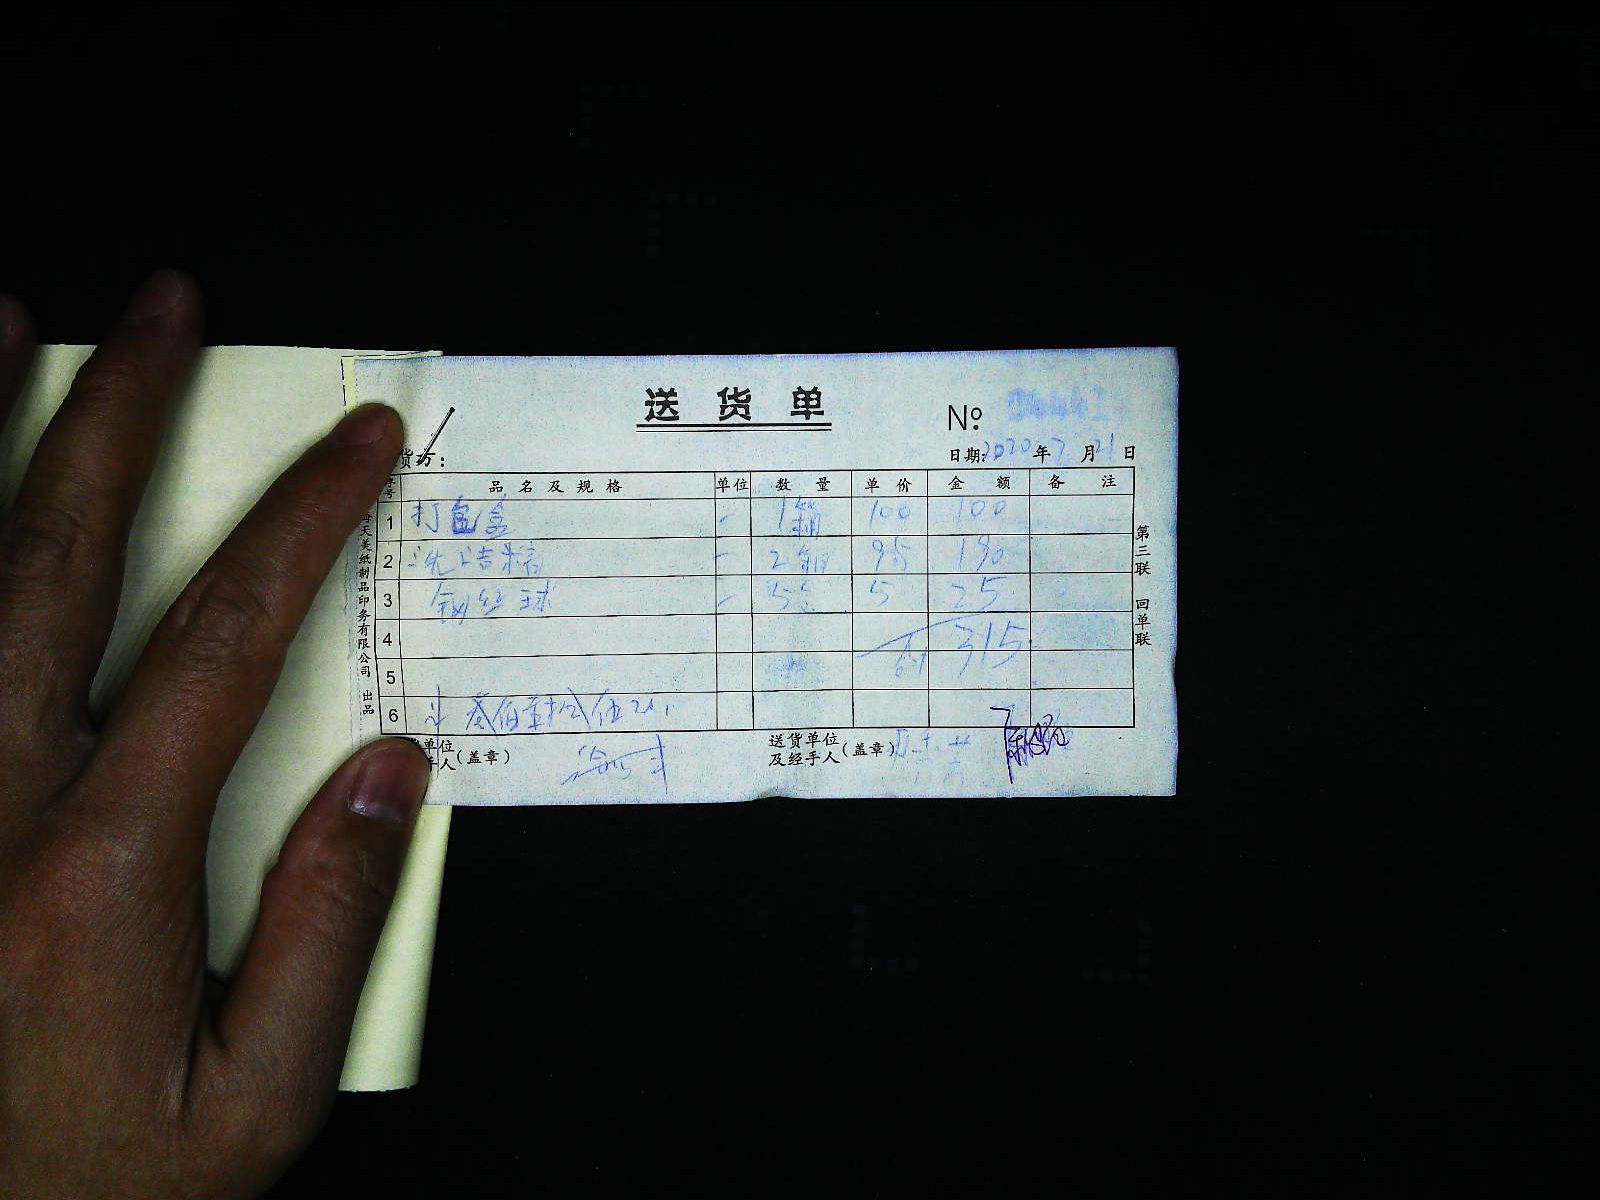 送货单
No:
货方:
日期: 2020年7月21日
序号 品名及规格 单位 数量 单价 金额 备注
1 打包盒 1箱 100 100
2 洗洁精 2箱 95 190
3 钢丝球 5 5 25
4 315
5
6 叁佰壹拾伍元
单位 人(盖章)
送货单位及经手人(盖章)
海天美纸制品印务有限公司 出品
第三联 回单联